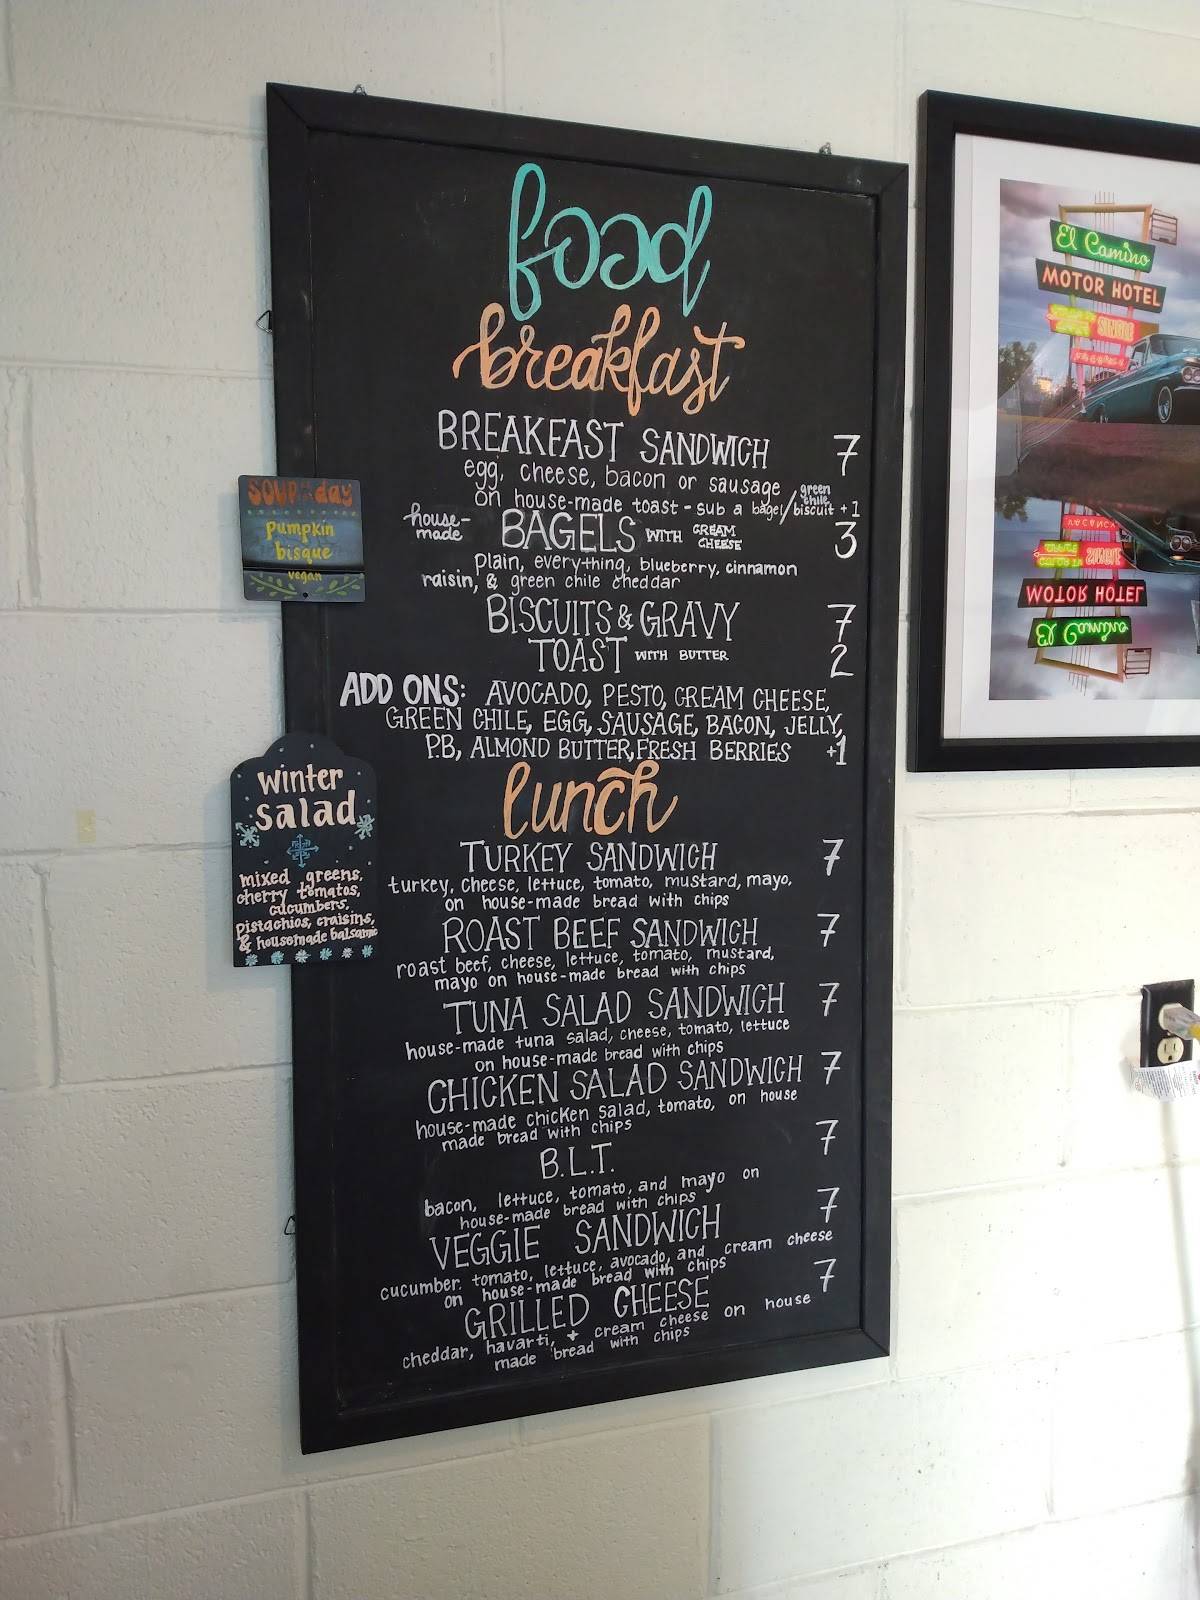 food
breakfast
BREAKFAST SANDWICH 7
egg, cheese, bacon or sausage
on house-made toast - sub a bagel/green chile biscuit +1
house-made BAGELS WITH CREAM CHEESE 3
plain, everything, blueberry, cinnamon
raisin, & green chile cheddar
BISCUITS & GRAVY 7
TOAST WITH BUTTER 2
ADD ONS: AVOCADO, PESTO, CREAM CHEESE,
GREEN CHILE, EGG, SAUSAGE, BACON, JELLY,
P.B, ALMOND BUTTER, FRESH BERRIES +1
lunch
TURKEY SANDWICH 7
turkey, cheese, lettuce, tomato, mustard, mayo,
on house-made bread with chips
ROAST BEEF SANDWICH 7
roast beef, cheese, lettuce, tomato, mustard,
mayo on house-made bread with chips
TUNA SALAD SANDWICH 7
house-made tuna salad, cheese, tomato, lettuce
on house-made bread with chips
CHICKEN SALAD SANDWICH 7
house-made chicken salad, tomato, on house
made bread with chips
B.L.T. 7
bacon, lettuce, tomato, and mayo on
house-made bread with chips
VEGGIE SANDWICH 7
cucumber. tomato, lettuce, avocado, and cream cheese
on house-made bread with chips
GRILLED CHEESE 7
cheddar, havarti, + cream cheese on house
made bread with chips
SOUP day
Pumpkin
bisque
vegan
Winter
salad
mixed greens,
cherry tomatos,
cucumbers,
pistachios, craisins,
& housemade balsamic
El Camino
MOTOR HOTEL
SINGLE
VACANCY
SINGLE
MOTOR HOTEL
El Camino